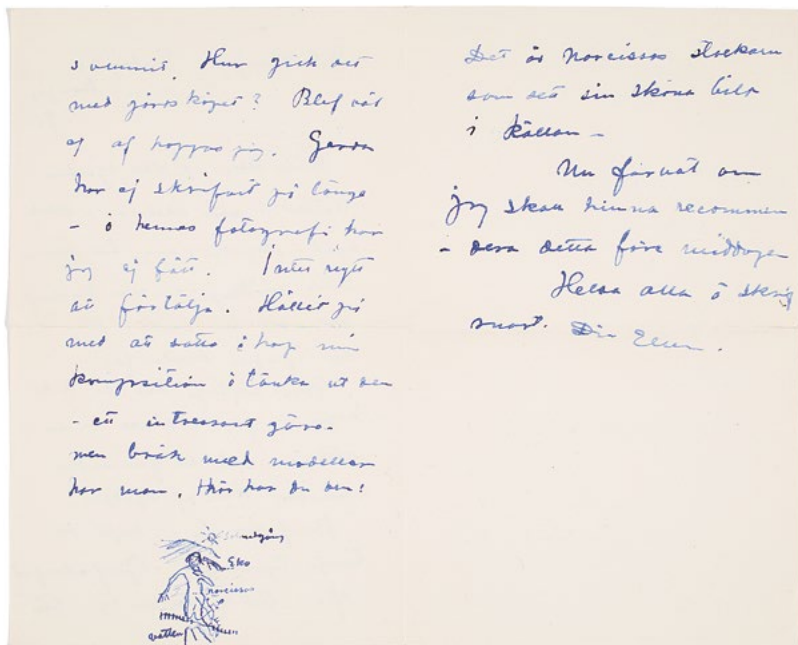 summit. Hur gick det
med jordsköpet? Blef väl
ej af hoppas jag. Gerda
har ej skrifvit på länge
- o hennes fotografi har
jag ej fått. Intet nytt
att förtälja. Hållit på
med att sätta i hop min
komposition o tänka ut den
- ett intressant göra-
men bråk med modeller
har man. Här har du den!
Eko
narcissos
vatten
Det är Narcissos älskaren
som sett sin sköna bild
i källan -
Nu får vi om
jag skall hinna recommen
- dera detta före middagen
Helsa alla o skrif
snart. Din Ellen.